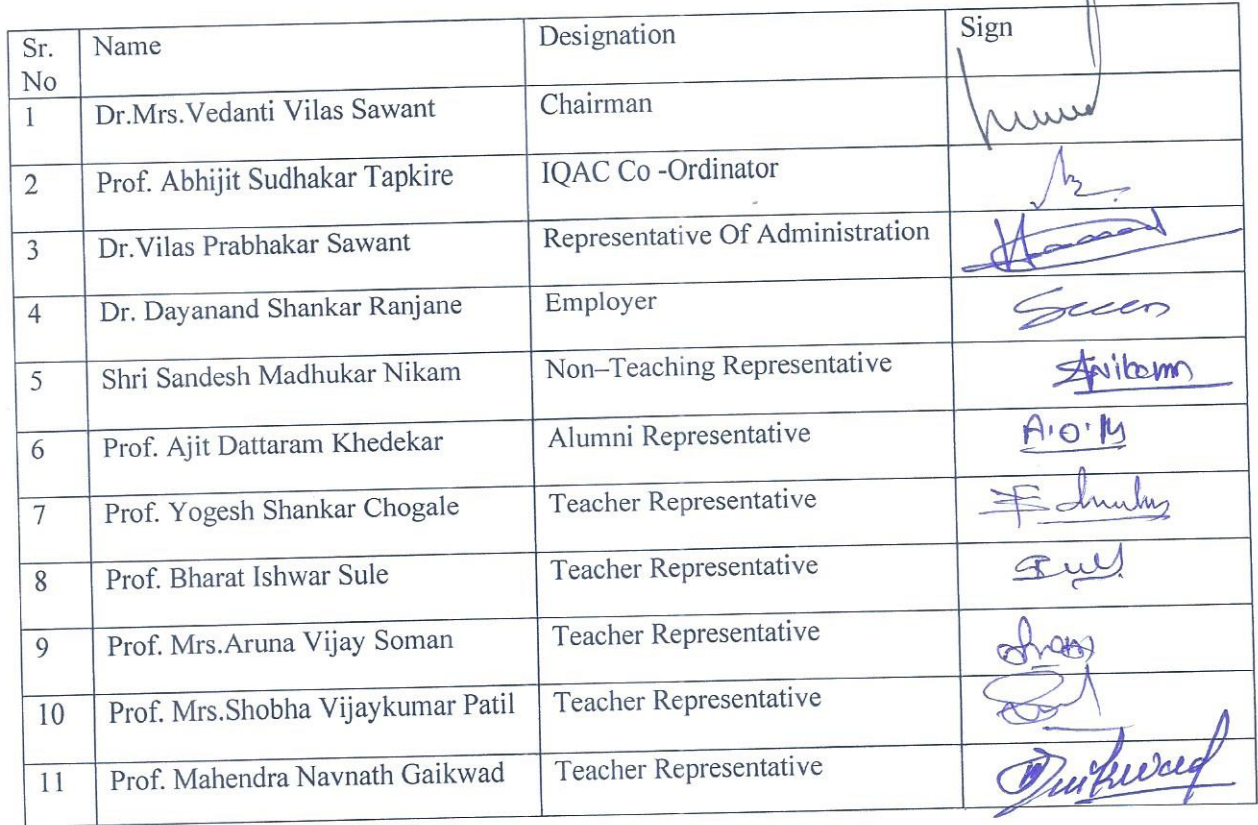 Sr. No Name Designation Sign
1 Dr.Mrs.Vedanti Vilas Sawant Chairman
2 Prof. Abhijit Sudhakar Tapkire IQAC Co -Ordinator
3 Dr.Vilas Prabhakar Sawant Representative Of Administration
4 Dr. Dayanand Shankar Ranjane Employer
5 Shri Sandesh Madhukar Nikam Non–Teaching Representative
6 Prof. Ajit Dattaram Khedekar Alumni Representative
7 Prof. Yogesh Shankar Chogale Teacher Representative
8 Prof. Bharat Ishwar Sule Teacher Representative
9 Prof. Mrs.Aruna Vijay Soman Teacher Representative
10 Prof. Mrs.Shobha Vijaykumar Patil Teacher Representative
11 Prof. Mahendra Navnath Gaikwad Teacher Representative